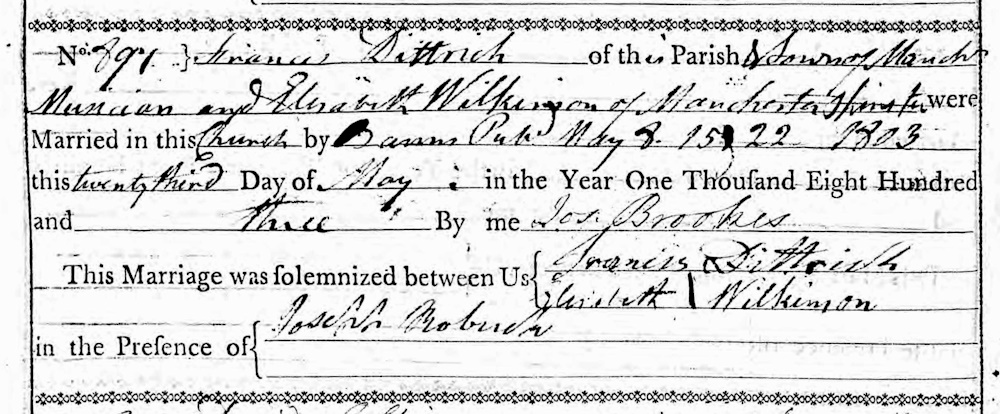 No. 891 } Francis Dittrich of this Parish & Town of Manchr
Musician and Elisabeth Wilkinson of Manchester Spinster were
Married in this Church by Banns Pubd May 8. 15 & 22 1803
this twenty third Day of May. in the Year One Thouſand Eight Hundred
and three By me Jos. Brookes
This Marriage was ſolemnized between Us { Francis Dittrich
Elisabeth Wilkinson
in the Preſence of { Joseph